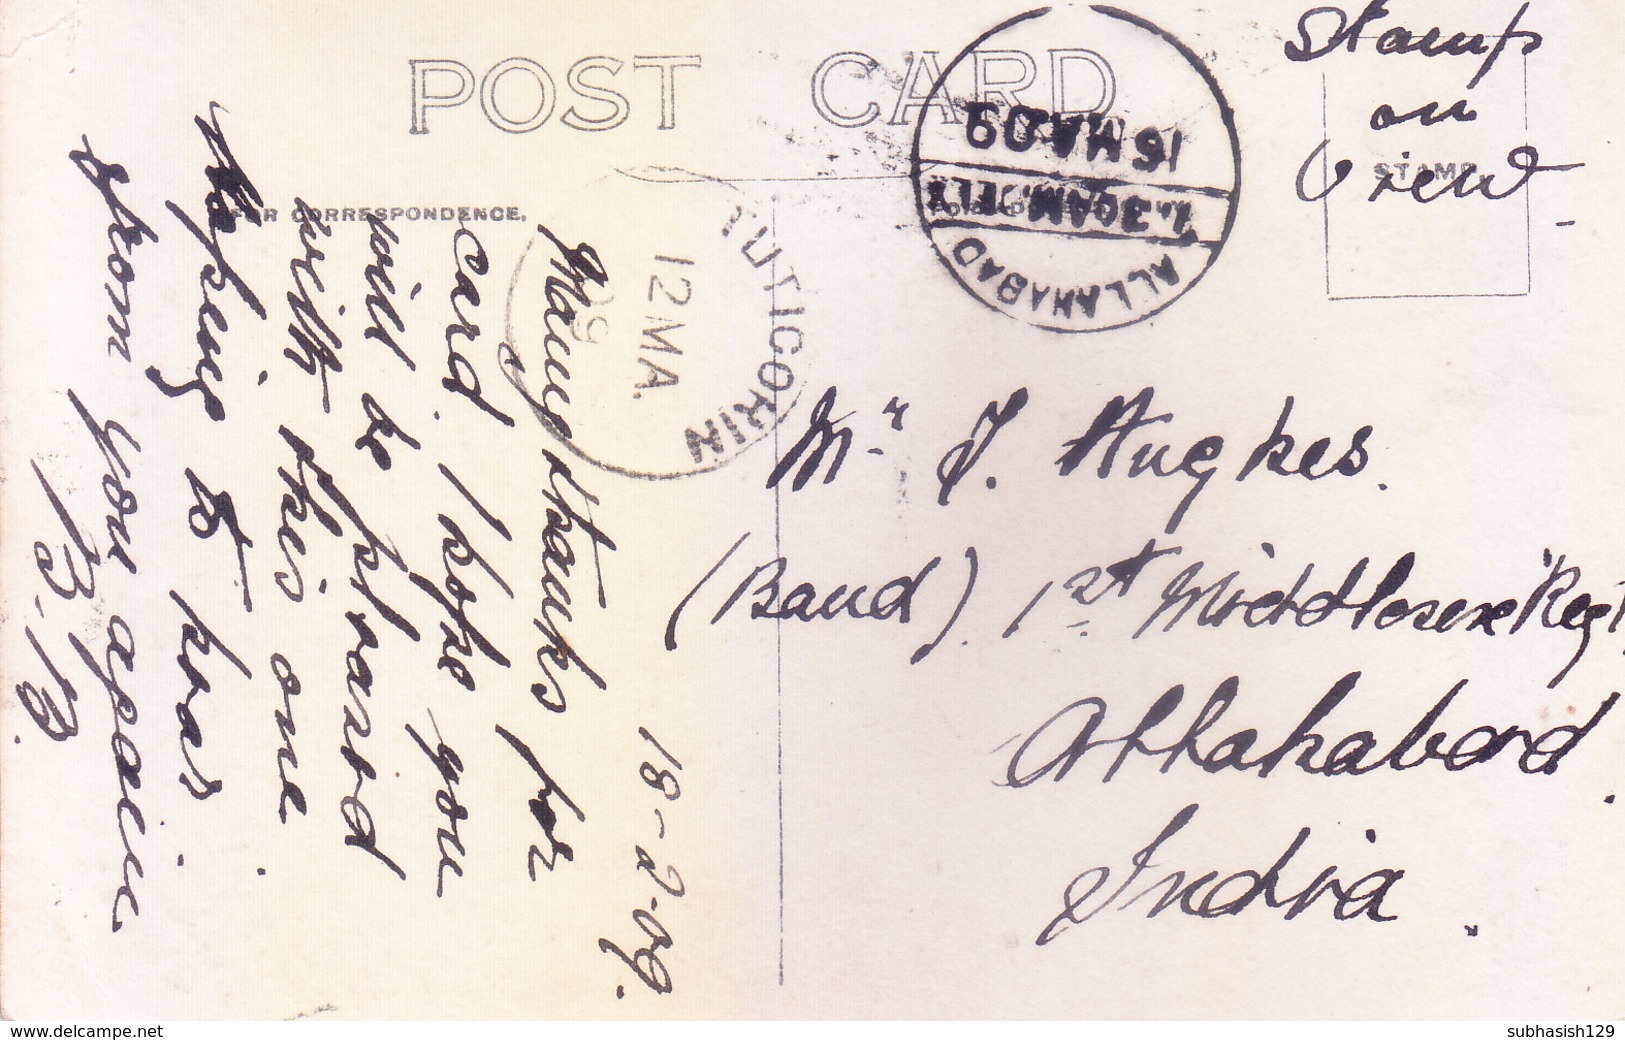 POST CARD
Stamp
on
View
STAMP
FOR CORRESPONDENCE.
18-2-09.
Many thanks for
card. I hope you
will be pleased
with this one
Hoping to hear
from you again
B. B.
TUTICORIN
12 MA.
09
16 MA 09
7.30AM. DELY
ALLAHABAD
Mr. J. Hughes.
(Band). 1st Middlesex "Regt
Allahabad.
India.
www.delcampe.net
subhasish129